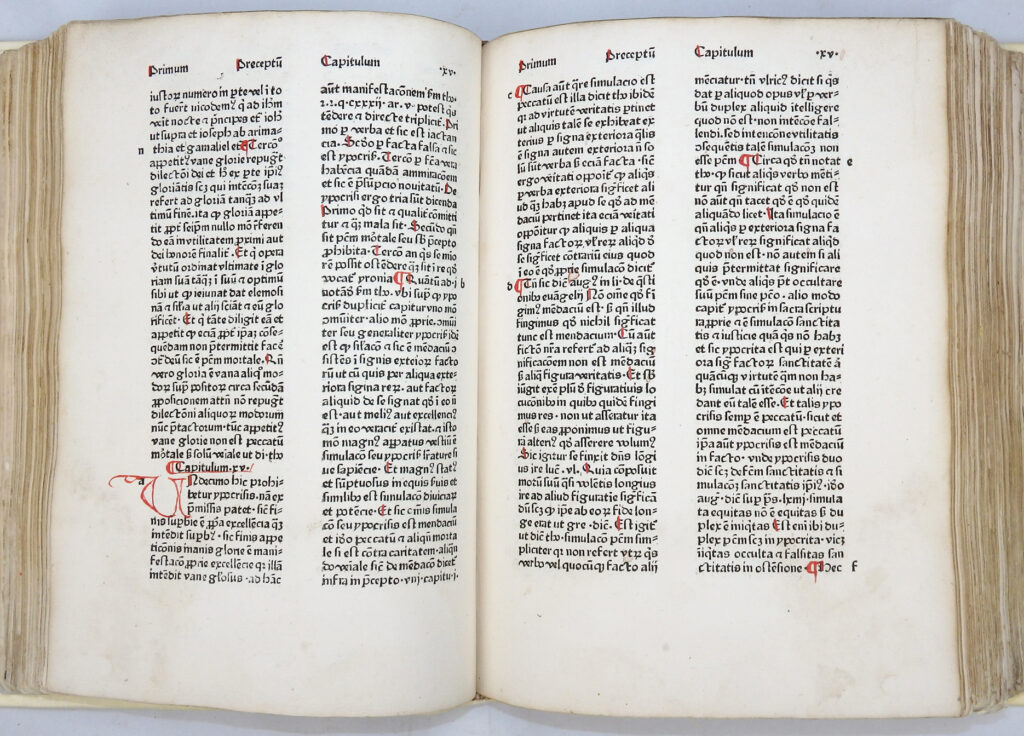 Primum Preceptū Capitulum .xv.
iustoꝝ numero in
to fuert nicodem⁹ q̄ ad ihm̄
vēit nocte & pͥncipes et ioh̄
ut supra et ioseph ab arima
n thia et gamaliel etc̄ Tercō
appetit⁹ vane glorie repugt
dilectōni dei
gloriātis scꝫ qui intencōꝫ suaꝫ
refert ad gloriā tanqꝫ ad vl
timū finē. ita ꝙ gloriā appe-
tit ꝓpt̄ seip̄m nullo mō referen
do eā in vtilitatem ꝓximi aut
dei honorē finalit̄. Et ꝙ opera
v̄tutū ordinat vltimate ī glo
riam suā tāqꝫ ī suū & optimū
sibi ut qͥ ieiunat dat elemosi
nā & silia ut alij sciāt & eū glo
rificēt. Et ꝙ tāte diligit eā et
appetit ꝙ eciā ꝓpt̄ ip̄aꝫ cōse-
quendam non p̄termittit facē
cōt̄ deū sic ē pēm mortale.
vero gloria ē vana aliqͦ mo-
doꝝ sup̄ positoꝝ circa secūdā
ꝓposicionem attn̄ non repugt
dilectōni aliquoꝝ modorum
nūc p̄tactorum. tūc appetit⁹
vane glorie non est peccatū
mōtale sꝫ solū veiale ut di. tho
Capitulum .xv.
a Undecimo hic prohi-
betur ypocrisis. nā ex
p̄missis patet. sic fi-
nis supbie ē ꝓpͥa excellēcia qꝫ
intēdit supb⁹. sic finis appe
ticōnis inanis glorie ē mani-
festacō ꝓpͥe excellēcie qꝫ illā
intēdit vane glosus. ad hāc
aūt manifestacōnem fm̄ tho.
2.2. q. cxxxij. ar. v. potest qͥs
tēdere & directe triplicit̄. Pri
mo ꝑ verba et sic est iactan
cia. Scd̄o ꝑ facta falsa & sic
est ypocrīs. Tercō ꝑ fca vera
habēcia quādā ammiracōem
et sic ē p̄sūpcio nouitatū. De
ypocrisi ergo tria sūt dicenda
Primo qd̄ sit & qualit̄ cōmitti
tur & qꝫ mala sit. Secūdo qn̄
sit pēm mōtale seu sb̄ p̄cepto
ꝓhibita. Tercō an qͥs se mio
rē possit ostēdere qꝫ sit
vocat̄ yronia Quātū ad
b uotādꝫ fm̄ tho. vbi sup̄ ꝙ ypo
crīs duplicit̄ capitur vno mō
cōmūiter. alio mō ꝓprie. cōmūi
ter seu generaliter ypocrīs idē
est ꝙ sīlacō & sic ē mēdaciū
sistēs ī signis exterioꝝ facto
rū ut cū quis per aliqua exte-
riora signa reꝝ. aut factoꝝ
aliquid de se signat qd̄ ī eo nō
est. aut meli⁹ aut excellenci⁹
qꝫ in eo veracit̄ existat. & ista
mō magn⁹ appatus vestiū ē
simulacō seu ypocrīs
ue sapiēcie. Et magn⁹ stat⁹
et sūptuosus in equis fuis et
similibꝫ est simulacō diuiciaꝝ
et potēcie. Et sic cōmunis simula
cō seu ypocrīs est mendaciū
et ido peccatū & aliqn̄ morta
le si est contra caritatem. aliqn̄
do veiale sic de mēdacō dicet̄
infra in p̄cepto. viij. capitu. j.
Primum Preceptū Capitulum .xv.
c Causa aūt qre simulacio est
peccatū est illa dicit tho. ibidē
ꝙ ad virtutem veritatis ꝑtinet
ut aliquis talē se exhibeat ex
terius ꝑ signa exteriora qͣlis
ē signa autem exteriora nō so
lū sūt verba sꝫ eciā facta. sic
ergo veritati opponit̄ ꝙ aliqͥs
ꝑ verba exteriora sigficet ali
ud qꝫ habꝫ apud se qd̄ ad mē
daciū ꝑtinet ita eciā veitati
opponitur ꝙ aliquis ꝑ aliqua
signa factoꝝ vl̄ rerū aliqd̄ d̄
se sigficet contrariū eius quod
ī eo ē qd̄ ꝓprie simulacō dicit̄
d Un̄ sic dic̄ aug⁹. in li. de qͣsti
onibꝫ euāgelij Nō ome qd̄ fi
gim⁹ mēdaciū est. sꝫ qn̄ illud
fingimus qd̄ nichil sigficat
tunc est mendaciū. Cū aūt
fictō nr̄a refert̄ ad aliqꝫ sig
nificacōem non est mendaciū
sꝫ aliq̄ figura veritatis. Et sb̄
iūgit exē plū d̄ figuratiuis lo
cucōnibꝫ in quibꝫ quidē fingi
mus res. non ut asseratur ita
esse sꝫ eas ꝓponimus ut figu-
rā alteri⁹ qd̄ asserere volum⁹
Sic igitur se finxit dn̄s lōgi
us ire luc̄. vl. Quia cōposuit
motū suū qͣsi volētis longius
ire ad aliud figuratie sigficā
dū scꝫ ꝙ ip̄e ab eoꝝ fide lon-
ge erat ut gre. dic̄. Est igit̄
ut dic̄ tho. simulacō pēm sim-
pliciter qͣ non refert vtꝝ qͥs
verbo vel quocūqꝫ facto alij
menciatur. tn̄ vlric⁹ dicit si qͥs
dat ꝑ aliquod opus vl̄ ꝑ ver-
bū duplex aliquid ītelligere
quod nō est. non intēcōe fal-
lendi. sed intencōne vtilitatis
consequētis talem simulacō non
esse pēm Circa qd̄ tn̄ notat e
tho. ꝙ sicut aliqͥs verbo menti-
tur qn̄ significat qd̄ non est
nō aūt qn̄ tacet qd̄ ē qd̄ quādo
aliquādo licet. Ita simulacio ē
qn̄ aliqͥs ꝑ exteriora signa fa
ctoꝝ vl̄ rerꝝ significat aliqd̄
quod non est. nō autem si ali
quis p̄termittat significare
qd̄ ē. vnde aliqͥs pt̄ occultare
suū pēm sine pcō. alio modo
capit̄ ypocrīs in sacra scriptu
ra ꝓprie & ē simulacō sanctita
tis & iusticie quā qͥs nō habꝫ
et sic ypocrita est qui ꝑ exteri
ora sigͣ factoꝝ sanctitatē ā
quācūqꝫ virtutē qͣm non ha-
bꝫ simulat cū itēcōe ut alij cre
dant eū talē esse. Et talis ypo
crisis semp̄ ē peccatū. sicut et
omne mēdacium est peccatum
ip̄a aūt ypocrisis est mēdaciū
in facto. vnde ypocrisis duo
dic̄ scꝫ defc̄m sanctitatis & si
mulacōꝫ sanctitatis ip̄i⁹. ido
aug⁹. dic̄ sup̄ ps. lxiij. simula
ta equitas nō ē equitas sꝫ du
plex ē iniqtas Est eni ibi du-
plex pēm scꝫ in ypocrita. vicꝫ
iniqͥtas occulta & falsitas san
ctitatis in ostēsione Hec f